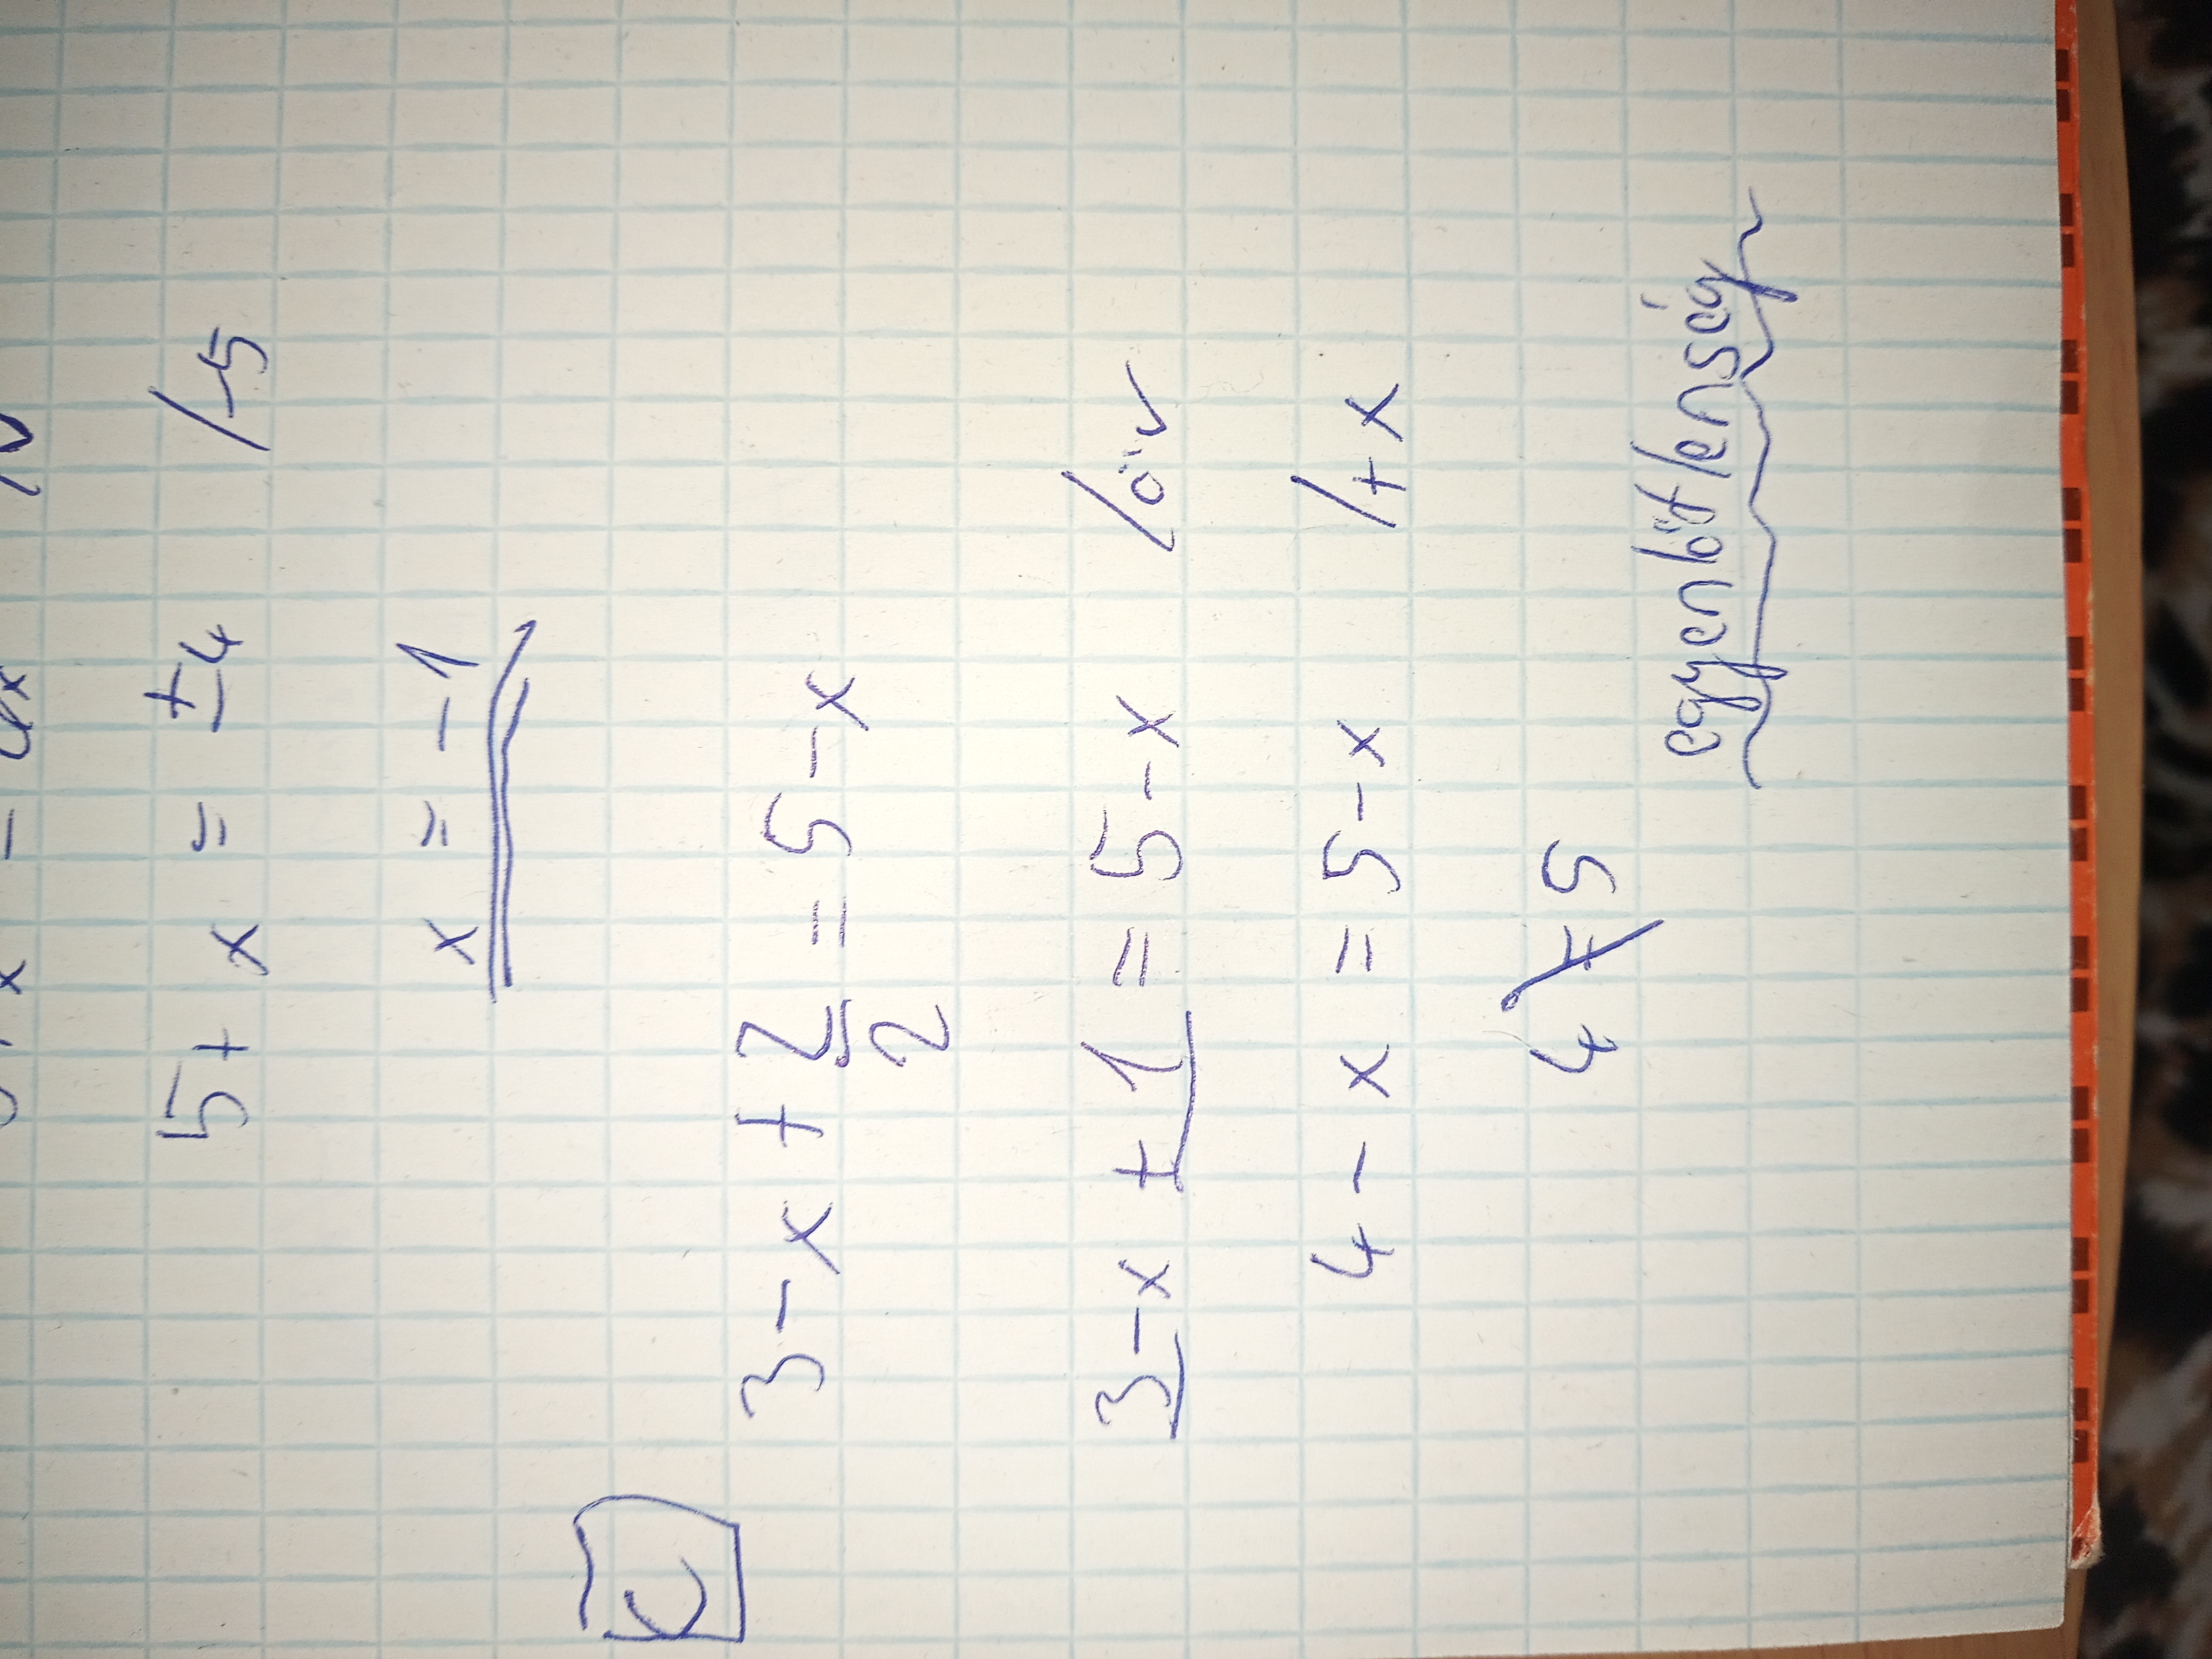 5 + x = +4 /-5
x = -1
C
3 - x + 2/2 = 5 - x
3 - x + 1 = 5 - x /öv
4 - x = 5 - x /+x
4 ≠ 5
egyenlőtlenség